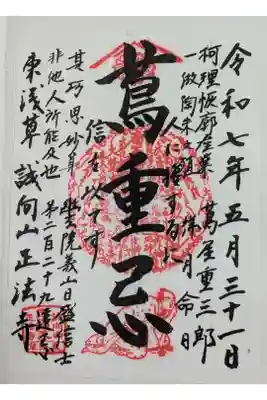 令和七年五月三十一日
柯理恢廓産業 蔦屋重三郎
一倣陶朱之 祥月命日
人に接するに
蔦重忌
信を以てす
其巧思妙算 幽玄院義山日盛信士
非他人所能及也 第二百二十九遠忌
東浅草 誠向山正法寺